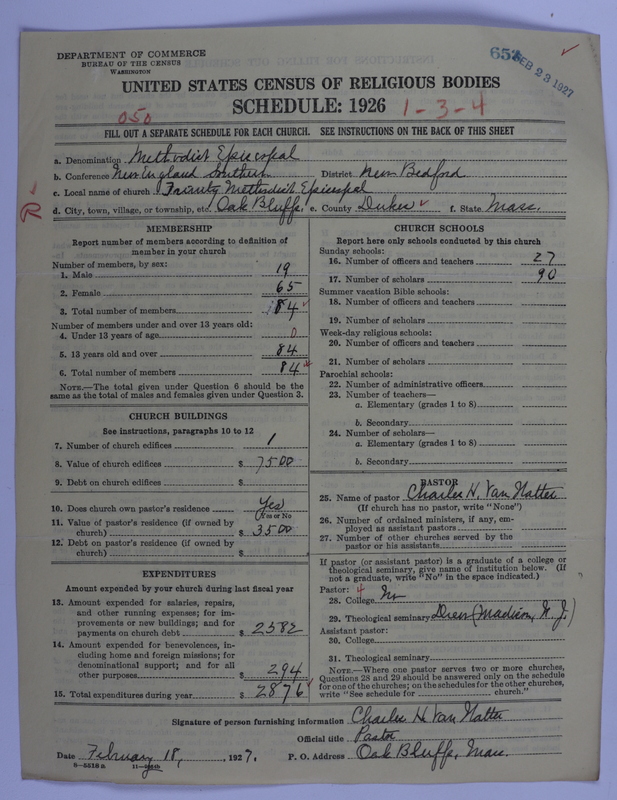 DEPARTMENT OF COMMERCE
BUREAU OF THE CENSUS
WASHINGTON
653
FEB 23 1927
UNITED STATES CENSUS OF RELIGIOUS BODIES
SCHEDULE: 1926
050
1-3-4
FILL OUT A SEPARATE SCHEDULE FOR EACH CHURCH. SEE INSTRUCTIONS ON THE BACK OF THIS SHEET
a. Denomination Methodist Episcopal
b. Conference New England Southern District New Bedford
c. Local name of church Trinity Methodist Episcopal
d. City, town, village, or township, etc. Oak Bluffs, e. County Dukes f. State Mass.
MEMBERSHIP
Report number of members according to definition of
member in your church
Number of members, by sex:
1. Male 19
2. Female 65
3. Total number of members 84
Number of members under and over 13 years old:
4. Under 13 years of age 0
5. 13 years old and over 84
6. Total number of members 84
NOTE.—The total given under Question 6 should be the
same as the total of males and females given under Question 3.
CHURCH BUILDINGS
See instructions, paragraphs 10 to 12
7. Number of church edifices 1
8. Value of church edifices $ 7500
9. Debt on church edifices $
10. Does church own pastor's residence Yes
(Yes or No)
11. Value of pastor's residence (if owned by
church) $ 3500
12. Debt on pastor's residence (if owned by
church) $
EXPENDITURES
Amount expended by your church during last fiscal year
13. Amount expended for salaries, repairs,
and other running expenses; for im-
provements or new buildings; and for
payments on church debt $ 2582
14. Amount expended for benevolences, in-
cluding home and foreign missions; for
denominational support; and for all
other purposes $ 294
15. Total expenditures during year $ 2876
CHURCH SCHOOLS
Report here only schools conducted by this church
Sunday schools:
16. Number of officers and teachers 27
17. Number of scholars 90
Summer vacation Bible schools:
18. Number of officers and teachers
19. Number of scholars
Week-day religious schools:
20. Number of officers and teachers
21. Number of scholars
Parochial schools:
22. Number of administrative officers
23. Number of teachers—
a. Elementary (grades 1 to 8)
b. Secondary
24. Number of scholars—
a. Elementary (grades 1 to 8)
b. Secondary
PASTOR
25. Name of pastor Charles H. Van Natter
(If church has no pastor, write "None")
26. Number of ordained ministers, if any, em-
ployed as assistant pastors
27. Number of other churches served by the
pastor or his assistants
If pastor (or assistant pastor) is a graduate of a college or
theological seminary, give name of institution below. (If
not a graduate, write "No" in the space indicated.)
Pastor: 4
28. College No
29. Theological seminary Drew (Madison, N. J.)
Assistant pastor:
30. College
31. Theological seminary
NOTE.—Where one pastor serves two or more churches,
Questions 28 and 29 should be answered only on the schedule
for one of the churches; on the schedules for the other churches,
write "See schedule for church."
Signature of person furnishing information Charles H. Van Natter
Official title Pastor
Date February 18, 1927. P. O. Address Oak Bluffs, Mass.